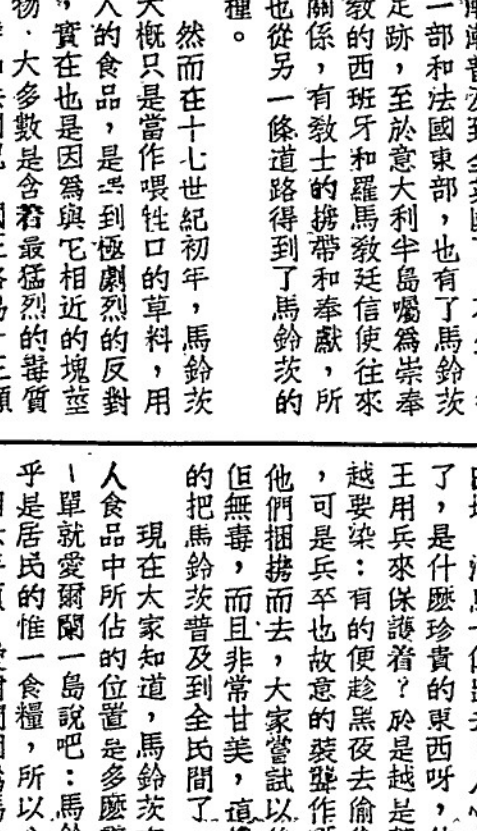 漸普及到全英國
一部和法國東部，也有了馬鈴茨
足跡，至於意大利半島囑爲崇奉
教的西班牙和羅馬教廷信使往來
關係，有教士的携帶和奉獻，所
也從另一條道路得到了馬鈴茨的
種。
然而在十七世紀初年，馬鈴茨
大概只是當作喂牲口的草料，用
人的食品，是遇到極劇烈的反對
，實在也是因爲與它相近的塊莖
物．大多數是含着最猛烈的毒質
了，是什麽珍貴的東西呀，
王用兵來保護着？於是越是
越要染：有的便趁黑夜去偷
，可是兵卒也故意的裝聾作
他們捆携而去，大家嘗試以
但無毒，而且非常甘美，這
的把馬鈴茨普及到全民間了
現在大家知道，馬鈴茨
人食品中所佔的位置是多麽
－單就愛爾闌一島說吧：馬鈴
乎是居民的惟一食糧，所以